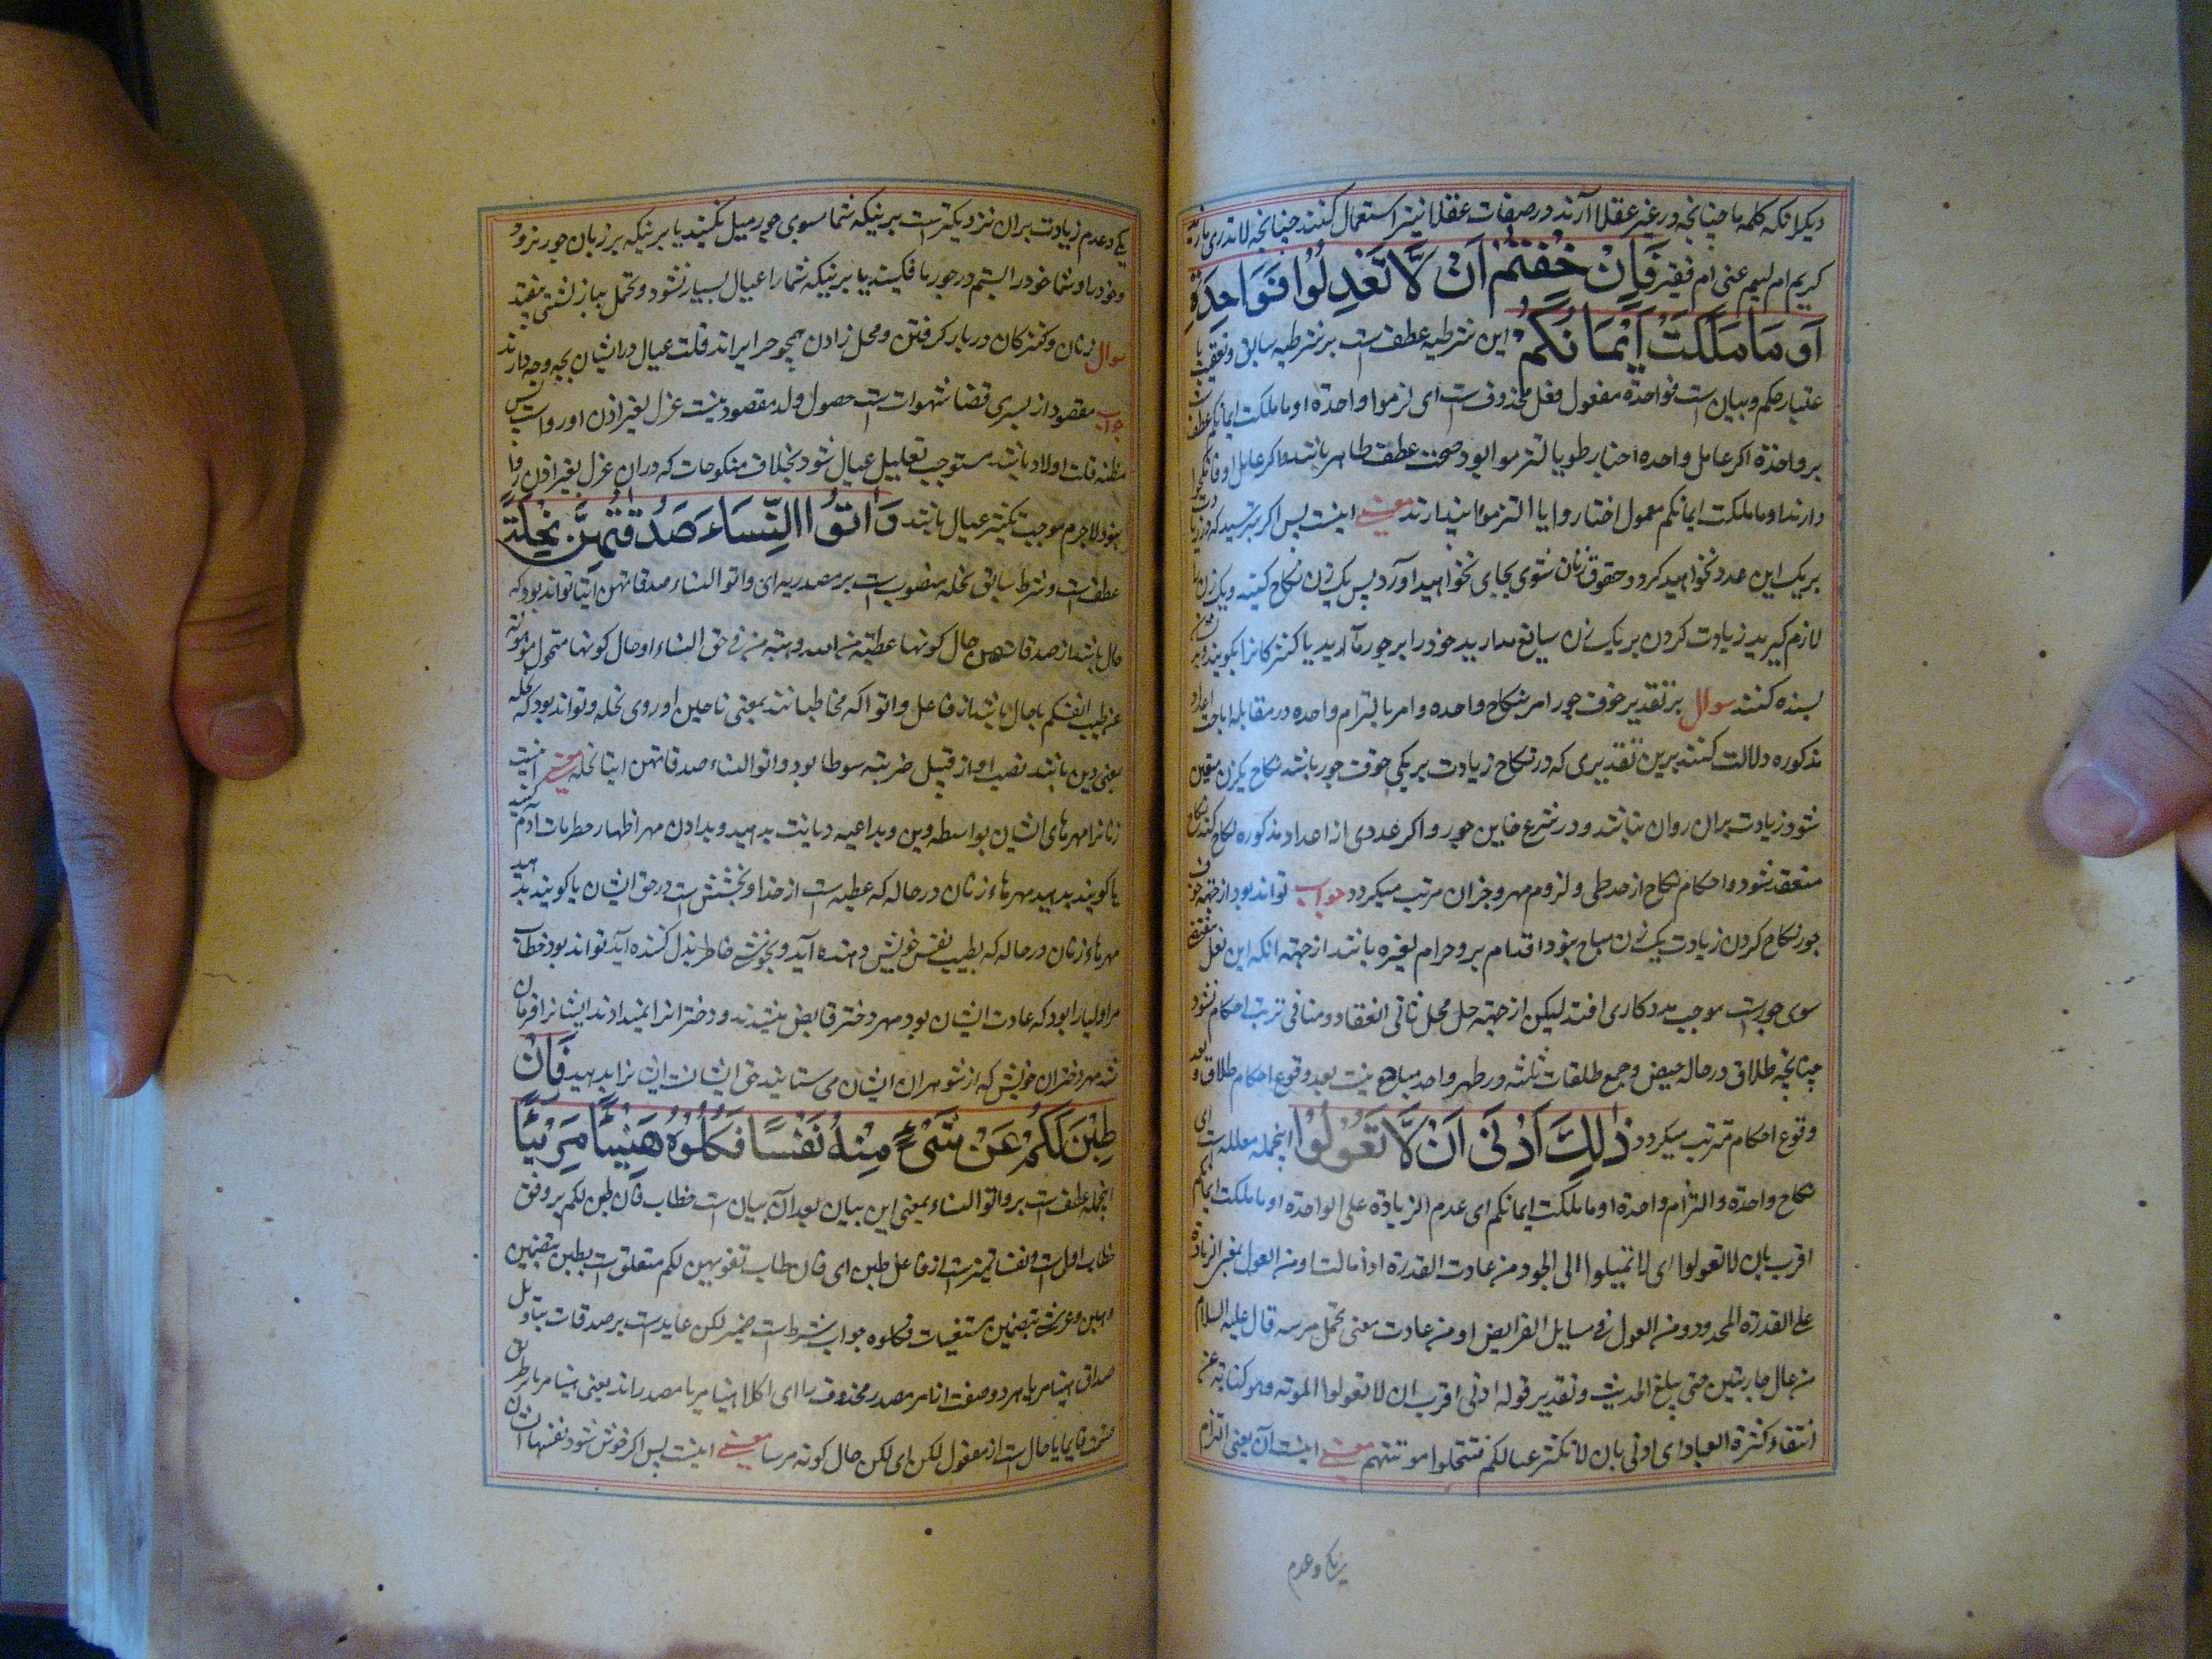 دیکر انکه کلمه ما چنانچه در غیر عقلا آرند در صفات عقلا نیز استعمال کنند چنانچه لا تدری ما زید
کریم ام لییم غنی ام فقیر فَاِنْ خِفْتُمْ اَنْ لَّا تَعْدِلُوْا فَوَاحِدَةً
اَوْ مَا مَلَكَتْ اَيْمَانُكُمْ این شرطیه عطف است بر شرطیه سابق و تعقیب با
عتبار حکم و بیان است فواحدة مفعول فعل محذوف است ای لزموا واحدة او ما ملکت ایمانکم عطف
بر واحدة اکر عامل واحده اختاروا یا التزموا بود صحت عطف ظاهر باشد و اکر عامل او فانکحوا
دارند او ما ملکت ایمانکم معمول اختاروا یا التزموا پندارند معنی اینست پس اکر بترسید که در زیادت
بر یک این عدد نخواهید کرد و حقوق زنان شوی بجای نخواهید آورد پس یک زن نکاح کنید و یک زن را
لازم کیرید زیادت کردن بر یک زن سایغ مدارید خود را بر جور مآرید یا کنیزکانرا بکویند و بر
بسنده کنند سوال بر تقدیر خوف جور امر بنکاح واحده و امر بالتزام واحده در مقابله اباحت اعداد
مذکوره دلالت کنند برین تقدیری که در نکاح زیادت بر یکی خوف جور باشد نکاح یکزن متعین
شود و زیادت بر ان روان نباشد و در شرع خاین جور و اکر عددی از اعداد مذکوره نکاح کند نکاح
منعقد شود و احکام نکاح از حد طی و لزوم مهر و جز ان مرتب میکردد جواب تواند بود از جهته خوف
جور نکاح کردن زیادت یک زن مباح بنود اقدام برو حرام لغیره باشد از جهته انکه این فعل مفضی
سوی جورست موجب بدکاری افتد لیکن از جهته حل محل نافی انعقاد و منافی ترتب احکام نشود
چنانچه طلاق در حاله حیض و جمع طلقات ثلثه در طهر واحد مباح نیست بعد وقوع احکام طلاق و بعد
وقوع احکام مرتب میکردد ذٰلِكَ اَدْنٰى اَنْ لَّا تَعُوْلُوْا اینجمله معلله است ای
نکاح واحدة و التزام واحدة او ما ملکت ایمانکم ای عدم الزیادة علی الواحدة او ما ملکت ایمانکم
اقرب بان لا تعولوا ای لا تمیلوا الی الجور من عادت القدرة اذا مالت او من العول بمعنی الزیادة
علی القدرة المحدود و من العول فی مسایل الفرایض او من عادت معنی تحمل مرسه قال علیه السلام
من عال جاریتین حتی یبلغ الحدیث و تقدیر قوله ادنی اقرب ان لا تعولوا الموته و هو کنایة عن
انتفاء کثرة العیال ای ادنی بان لا تکثر عیالکم فتتحملوا موتتهم معنی اینست آن یعنی التزام
یکی و عدم
یکی و عدم زیادت بر ان نزدیکترست برینکه شما سوی جور میل نکنید یا برینکه بر زنان جور نرود
و خود را و شما خود را بستم در جور ما فکنید یا برینکه شما را عیال بسیار نشود و تحمل بباز انشتی نیفتد
سوال زنان و کنیزکان در بار کرفتن و محل زادن همچو حرایر اند قلت عیال در ایشان بچه وجه دارند
جواب مقصود از بسری قضا شهوات است حصول ولد مقصود نیست عزل بغیر اذن او رواست پس
مظنه قلت اولاد باشد مستوجب تعلیل عیال شود بخلاف منکوحات که در ان عزل بغیر اذن روا
بنود لا جرم موجب تکثیر عیال باشد وَاٰتُوا النِّسَاءَ صَدُقٰتِهِنَّ نِحْلَةً
عطف است و شرط سابق نحله منصوب است بر مصدریه ای و اتوا النساء صدقاتهن ایتا تواند بود که
حال باشد از صدقاتهن حال کونها عطیة من الله و هبته منه فی حق النساء او حال کونها متحول موهوبة
عن طیب انفسکم یا حال باشد از فاعل و اتوا که مخاطبانند بمعنی ناحلین او روی نحله و تواند بود که نحله
بمعنی دین باشد نصب او از قبیل ضربته سوطا بود و اتوا النساء صدقاتهن ایتا نحله معنی اینست
زنانرا مهرهای ایشان بواسطه دین و بداعیه دیانت بدهید و بدادن مهر اظهار خطر مات آدم کنید
یا کویند بدهید مهرهاء زنان در حاله که عطیه است از خدا و بخشش است در حق ایشان یا کویند بدهید
مهرهاء زنان در حاله که بطیب نفس خویش دهنده آید و بخوشی خاطر بذل کننده آید تواند بود خطاب
مر اولیا را بود که عادت ایشان بود مهر دختر قابض میشدند و دخترانرا نمیدادند ایشانرا فرمان
شد مهر دختران خویش که از شوهران ایشان می ستانید حق ایشانست ایشانرا بدهید فَاِنْ
طِبْنَ لَكُمْ عَنْ شَىْءٍ مِنْهُ نَفْسًا فَكُلُوْهُ هَنِيْئًا مَرِيْئًا
اینجمله عطف است بر و اتوا النساء بمعنی این بیان بعد آن بیان است خطاب فان طبن لکم بر وفق
خطاب اول است و نفسا تمیزست از فاعل طبن ای فان طاب نفوسهن لکم متعلق است بطبن بتضمین
وهبن و عن شی بتضمین مستغنیات فکلوه جواب شرط است ضمیر لکن عاید است بر صدقات بتاویل
صداق هنیئا مریا هر دو صفت انا مر مصدر محذوف را ای اکلا هنیئا مریا مصدر اند یعنی هنیئا مریا بر طریق
از مفعول لکن ای لکن حال کونه مرسا معنی اینست پس اکر خوش شود نفسهاء ایشان